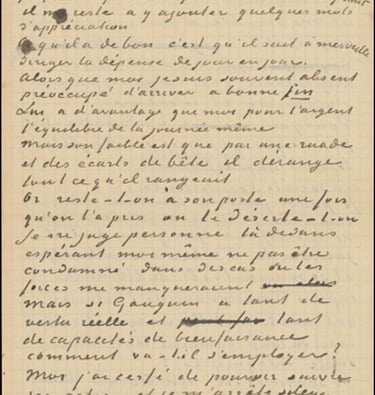 il me reste a y ajouter quelques mots
d'appréciation
qu'il a de bon c'est qu'il sait à merveille
diriger la dépense de jour en jour.
Alors que moi je suis souvent absent
préoccupé d'arriver a bonne fin
Lui a d'avantage que moi pour l'argent
l'équilibre de la journée même
Mais son faible est que par une ruade
et des écarts de bête il dérange
tout ce qu'il rangeait
Or reste-t-on à son poste une fois
qu'on l'a pris ou le déserte-t-on
Je ne juge personne là dedans
espérant moi même ne pas être
condamné dans des cas où les
forces me manqueraient
Mais si Gauguin a tant de
vertu réelle et tant
de capacités de bienfaisance
comment va-t-il s'employer?
Moi j'ai cessé de pouvoir suivre
et je m'arrête